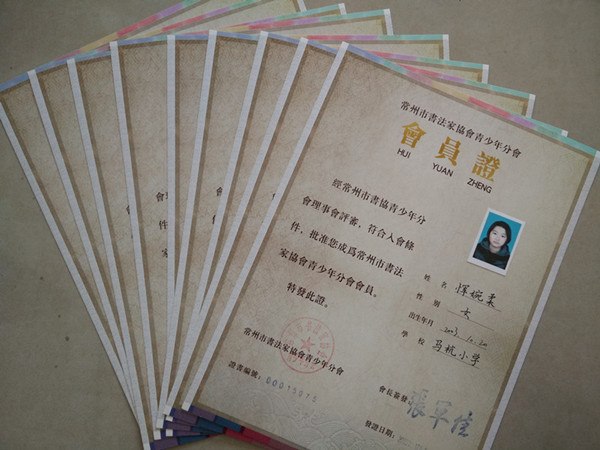 常州市書法家協會青少年分會
會員證
HUI YUAN ZHENG
經常州市書協青少年分
會理事會評審，符合入會條
件，批准您成爲常州市書法
家協會青少年分會會員。
特發此證。
姓名 恽婉柔
性別 女
出生年月 2003.10.20
學校 马杭小学
常州市書法家協會青少年分會
證書編號：00015075
會長簽發：
發證日期：
會
件
家
會
件
家